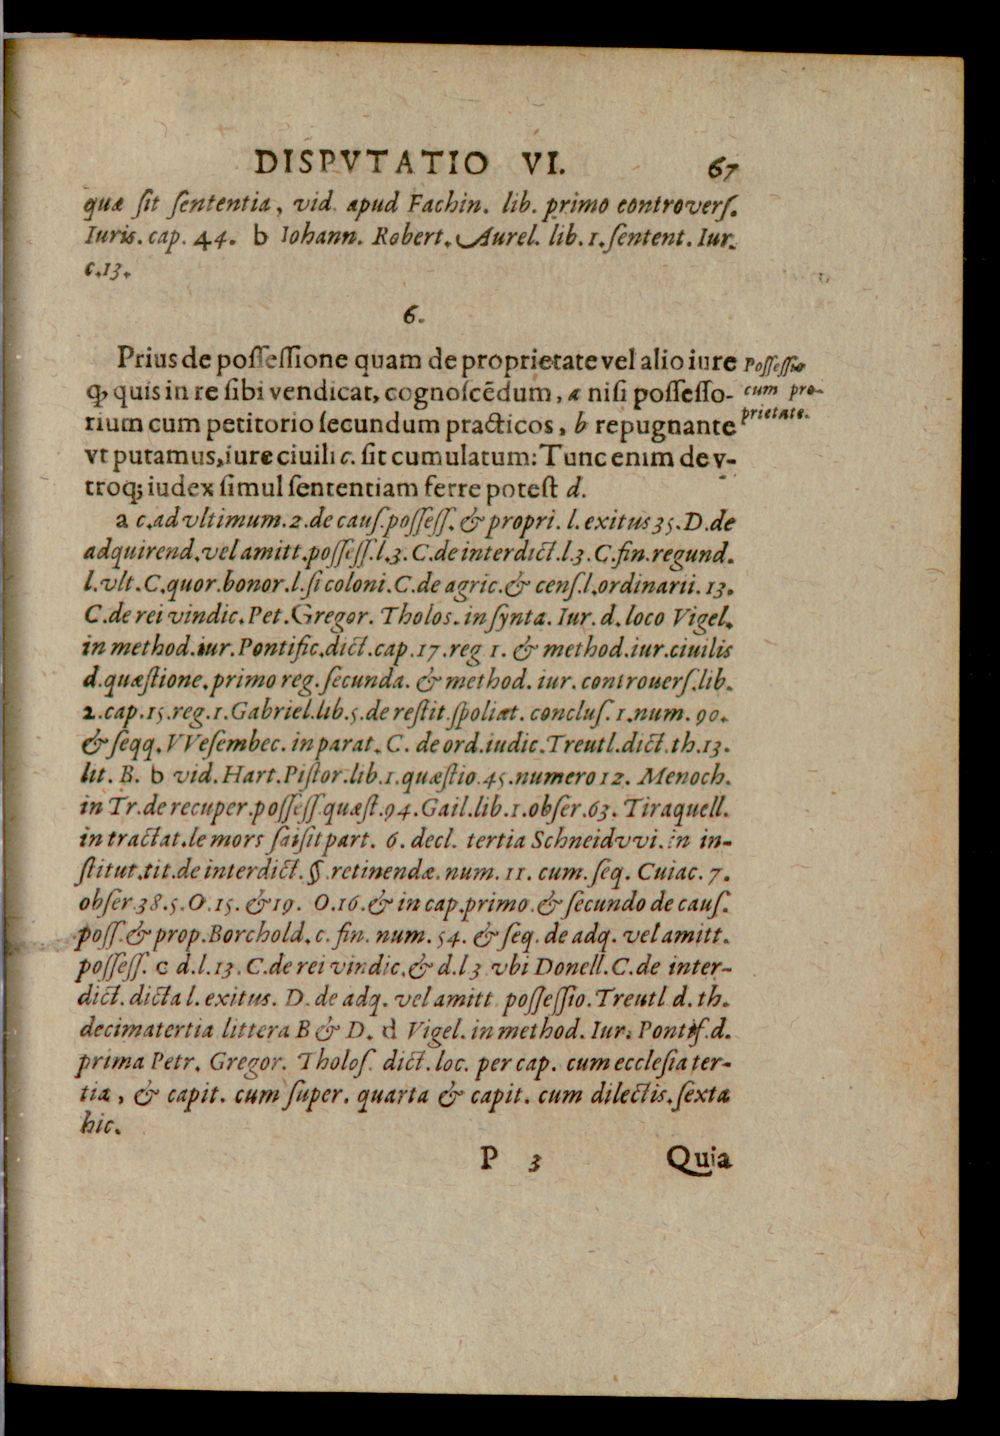 DISPVTATIO VI. 67
quæ ſit ſententia, vid. apud Fachin. lib. primo controverſ.
Iuris. cap. 44. b Iohann. Robert. Aurel. lib. 1. ſentent. Iur.
c. 13.
6.
Prius de poſſeſſione quam de proprietate vel alio iure
q̃, quis in re ſibi vendicat, cognoſcẽdum, a niſi poſſeſſo-
rium cum petitorio ſecundum practicos, b repugnante
vt putamus, iure ciuili c. ſit cumulatum: Tunc enim de v-
troq; iudex ſimul ſententiam ferre poteſt d.
Poſſeſſio
cum pro-
prietate.
a c. ad vltimum. 2. de cauſ. poſſeſſ. & propri. l. exitus 35. D. de
adquirend. vel amitt. poſſeſſ. l. 3. C. de interdict. l. 3. C. fin. regund.
l. vlt. C. quor. bonor. l. ſi coloni. C. de agric. & cenſ. l. ordinarii. 13.
C. de rei vindic. Pet. Gregor. Tholos. in ſynta. Iur. d. loco Vigel.
in method. iur. Pontific. dict. cap. 17. reg 1. & method. iur. ciuilis
d. quæſtione. primo reg. ſecunda. & method. iur. controuerſ. lib.
2. cap. 15. reg. 1. Gabriel. lib. 5. de reſtit. ſpoliat. concluſ. 1. num. 90.
& ſeqq. VVeſembec. in parat. C. de ord. iudic. Treutl. dict. th. 13.
lit. B. b vid. Hart. Piſtor. lib. 1. quæſtio. 45. numero 12. Menoch.
in Tr. de recuper. poſſeſſ. quæſt. 94. Gail. lib. 1. obſer. 63. Tiraquell.
in tractat. le mors ſaiſit part. 6. decl. tertia Schneidvvi. in in-
ſtitut. tit. de interdict. §. retinendæ. num. 11. cum. ſeq. Cuiac. 7.
obſer 38. 5. O. 15. & 19. O. 16. & in cap. primo. & ſecundo de cauſ.
poſſ. & prop. Borchold. c. fin. num. 54. & ſeq. de adq. vel amitt.
poſſeſſ. c d. l. 13. C. de rei vindic. & d. l 3 vbi Donell. C. de inter-
dict. dicta l. exitus. D. de adq. vel amitt poſſeſſio. Treutl d. th.
decimatertia littera B & D. d Vigel. in method. Iur. Pontif. d.
prima Petr. Gregor. Tholoſ. dict. loc. per cap. cum eccleſia ter-
tia, & capit. cum ſuper. quarta & capit. cum dilectis. ſexta
hic.
P 3 Quia